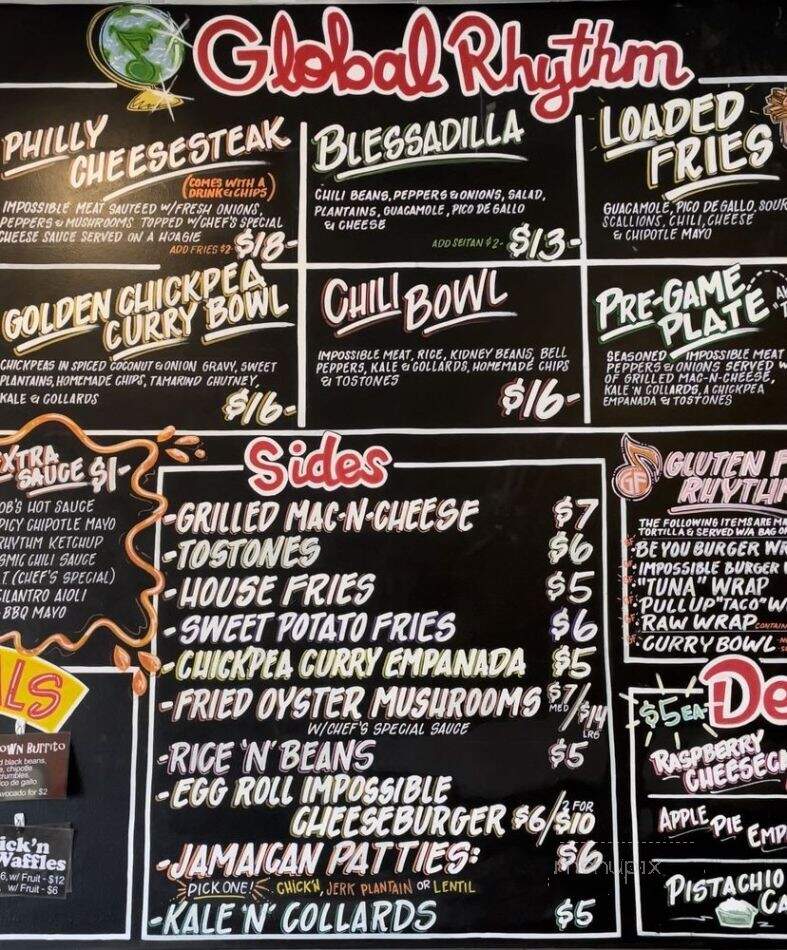 Global Rhythm
PHILLY
CHEESESTEAK
(COMES WITH A
DRINK & CHIPS)
IMPOSSIBLE MEAT SAUTEED W/FRESH ONIONS,
PEPPERS & MUSHROOMS TOPPED W/CHEF'S SPECIAL
CHEESE SAUCE SERVED ON A HOAGIE
ADD FRIES $2- $18-
BLESSADILLA
CHILI BEANS, PEPPERS & ONIONS, SALAD,
PLANTAINS, GUACAMOLE, PICO DE GALLO
& CHEESE
ADD SEITAN $2- $13-
LOADED
FRIES
GUACAMOLE, PICO DE GALLO, SOUR
SCALLIONS, CHILI, CHEESE
& CHIPOTLE MAYO
GOLDEN CHICKPEA
CURRY BOWL
CHICKPEAS IN SPICED COCONUT & ONION GRAVY, SWEET
PLANTAINS, HOMEMADE CHIPS, TAMARIND CHUTNEY,
KALE & COLLARDS
$16-
CHILI BOWL
IMPOSSIBLE MEAT, RICE, KIDNEY BEANS, BELL
PEPPERS, KALE & COLLARDS, HOMEMADE CHIPS
& TOSTONES
$16-
PRE-GAME
PLATE
SEASONED IMPOSSIBLE MEAT
PEPPERS & ONIONS SERVED W
OF GRILLED MAC-N-CHEESE,
KALE 'N COLLARDS, A CHICKPEA
EMPANADA & TOSTONES
XTRA
SAUCE $1-
OB'S HOT SAUCE
PICY CHIPOTLE MAYO
RHYTHM KETCHUP
SMIC CHILI SAUCE
T (CHEF'S SPECIAL)
CILANTRO AIOLI
BBQ MAYO
ALS
OWN BURRITO
d black beans,
e, chipotle
crumbles,
ico de gallo
avocado for $2
ick'n
Waffles
6, w/ Fruit - $12
w/ Fruit - $6
Sides
-GRILLED MAC-N-CHEESE $7
-TOSTONES $6
-HOUSE FRIES $5
-SWEET POTATO FRIES $6
-CHICKPEA CURRY EMPANADA $5
-FRIED OYSTER MUSHROOMS $7 MED/$14 LRG
W/CHEF'S SPECIAL SAUCE
-RICE 'N' BEANS $5
-EGG ROLL IMPOSSIBLE
CHEESEBURGER $6/2 FOR $10
-JAMAICAN PATTIES: $6
PICK ONE! CHICK'N, JERK PLANTAIN OR LENTIL
-KALE 'N' COLLARDS $5
GF
GLUTEN F
RHYTH
THE FOLLOWING ITEMS ARE MA
TORTILLA & SERVED W/A BAG O
BE YOU BURGER WR
IMPOSSIBLE BURGER
"TUNA" WRAP
PULL UP "TACO" W
RAW WRAP CONTAIN
CURRY BOWL
$5 EA- De
RASPBERRY
CHEESECA
APPLE PIE EMP
PISTACHIO
CA
menupix